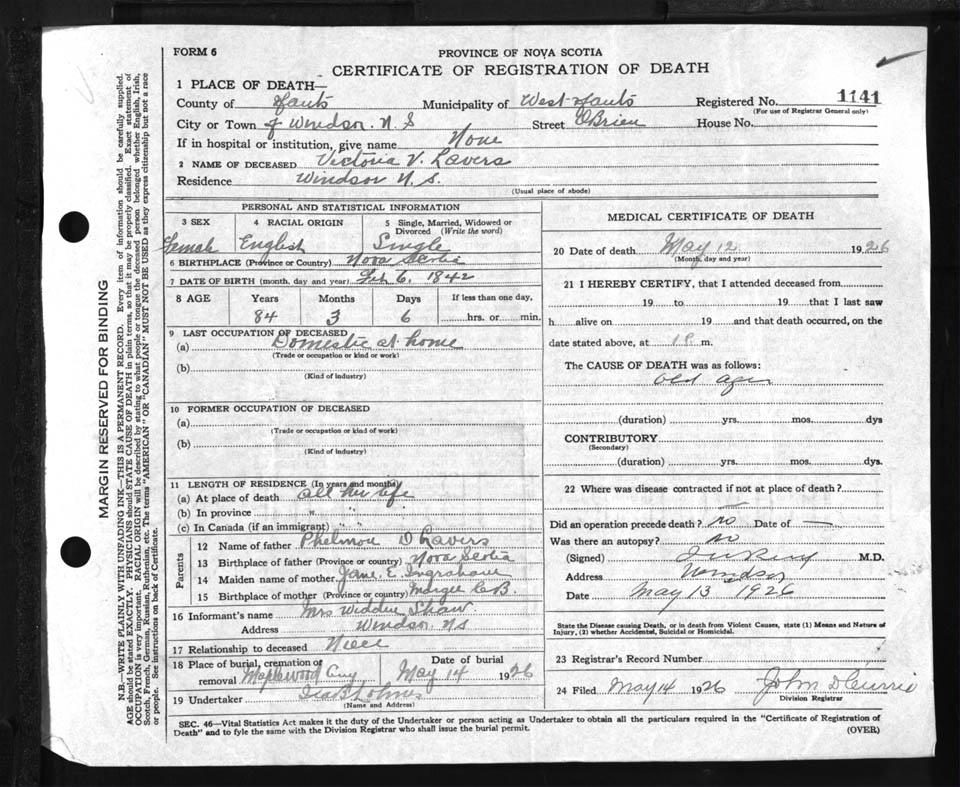 FORM 6
PROVINCE OF NOVA SCOTIA
CERTIFICATE OF REGISTRATION OF DEATH
1 PLACE OF DEATH—
County of Hants Municipality of West Hants Registered No. 1141
(For use of Registrar General only)
City or Town of Windsor. N.S Street O'Brien House No.
If in hospital or institution, give name None
2 NAME OF DECEASED Victoria V. Lavers
Residence Windsor N.S.
(Usual place of abode)
PERSONAL AND STATISTICAL INFORMATION
3 SEX 4 RACIAL ORIGIN 5 Single, Married, Widowed or Divorced (Write the word)
Female English Single
6 BIRTHPLACE (Province or Country) Nova Scotia
7 DATE OF BIRTH (month, day and year) Feb 6. 1842
8 AGE Years Months Days If less than one day,
84 3 6 hrs. or min.
9 LAST OCCUPATION OF DECEASED
(a) Domestic at home
(Trade or occupation or kind or work)
(b)
(Kind of industry)
10 FORMER OCCUPATION OF DECEASED
(a)
(Trade or occupation or kind of work)
(b)
(Kind of industry)
11 LENGTH OF RESIDENCE (In years and months)
(a) At place of death all her life
(b) In province "
(c) In Canada (if an immigrant) " "
Parents
12 Name of father Phelmon D Lavers
13 Birthplace of father (Province or country) Nova Scotia
14 Maiden name of mother Jane. E. Ingraham
15 Birthplace of mother (Province or country) Margee CB.
16 Informant's name Mrs Shaw
Address Windsor NS
17 Relationship to deceased Niece
18 Place of burial, cremation or removal Maplewood Date of burial May 14 1926
19 Undertaker
(Name and Address)
MEDICAL CERTIFICATE OF DEATH
20 Date of death May 12 1926
(Month, day and year)
21 I HEREBY CERTIFY, that I attended deceased from
19 to 19 that I last saw
h alive on 19 and that death occurred, on the
date stated above, at m.
The CAUSE OF DEATH was as follows:
old age
(duration) yrs. mos. dys
CONTRIBUTORY
(Secondary)
(duration) yrs. mos. dys.
22 Where was disease contracted if not at place of death?
—
Did an operation precede death? no Date of —
Was there an autopsy? no
(Signed) M.D.
Address Windsor
Date May 13 1926
State the Disease causing Death, or in death from Violent Causes, state (1) Means and Nature of
Injury, (2) whether Accidental, Suicidal or Homicidal.
23 Registrar's Record Number
24 Filed May 14 1926 John D Currie
Division Registrar
SEC. 46—Vital Statistics Act makes it the duty of the Undertaker or person acting as Undertaker to obtain all the particulars required in the "Certificate of Registration of
Death" and to fyle the same with the Division Registrar who shall issue the burial permit. (OVER)
MARGIN RESERVED FOR BINDING
N.B.—WRITE PLAINLY WITH UNFADING INK—THIS IS A PERMANENT RECORD. Every item of information should be carefully supplied.
AGE should be stated EXACTLY. PHYSICIANS should STATE CAUSE OF DEATH in plain terms, so that it may be properly classified. Exact statement of
OCCUPATION is very important. RACIAL ORIGIN will be described by stating to what people or tongue the deceased person belonged whether English, Irish,
Scotch, French, German, Russian, Ruthenian, etc. The terms "AMERICAN" OR "CANADIAN" MUST NOT BE USED as they express citizenship but not a race
or people. See instructions on back of Certificate.